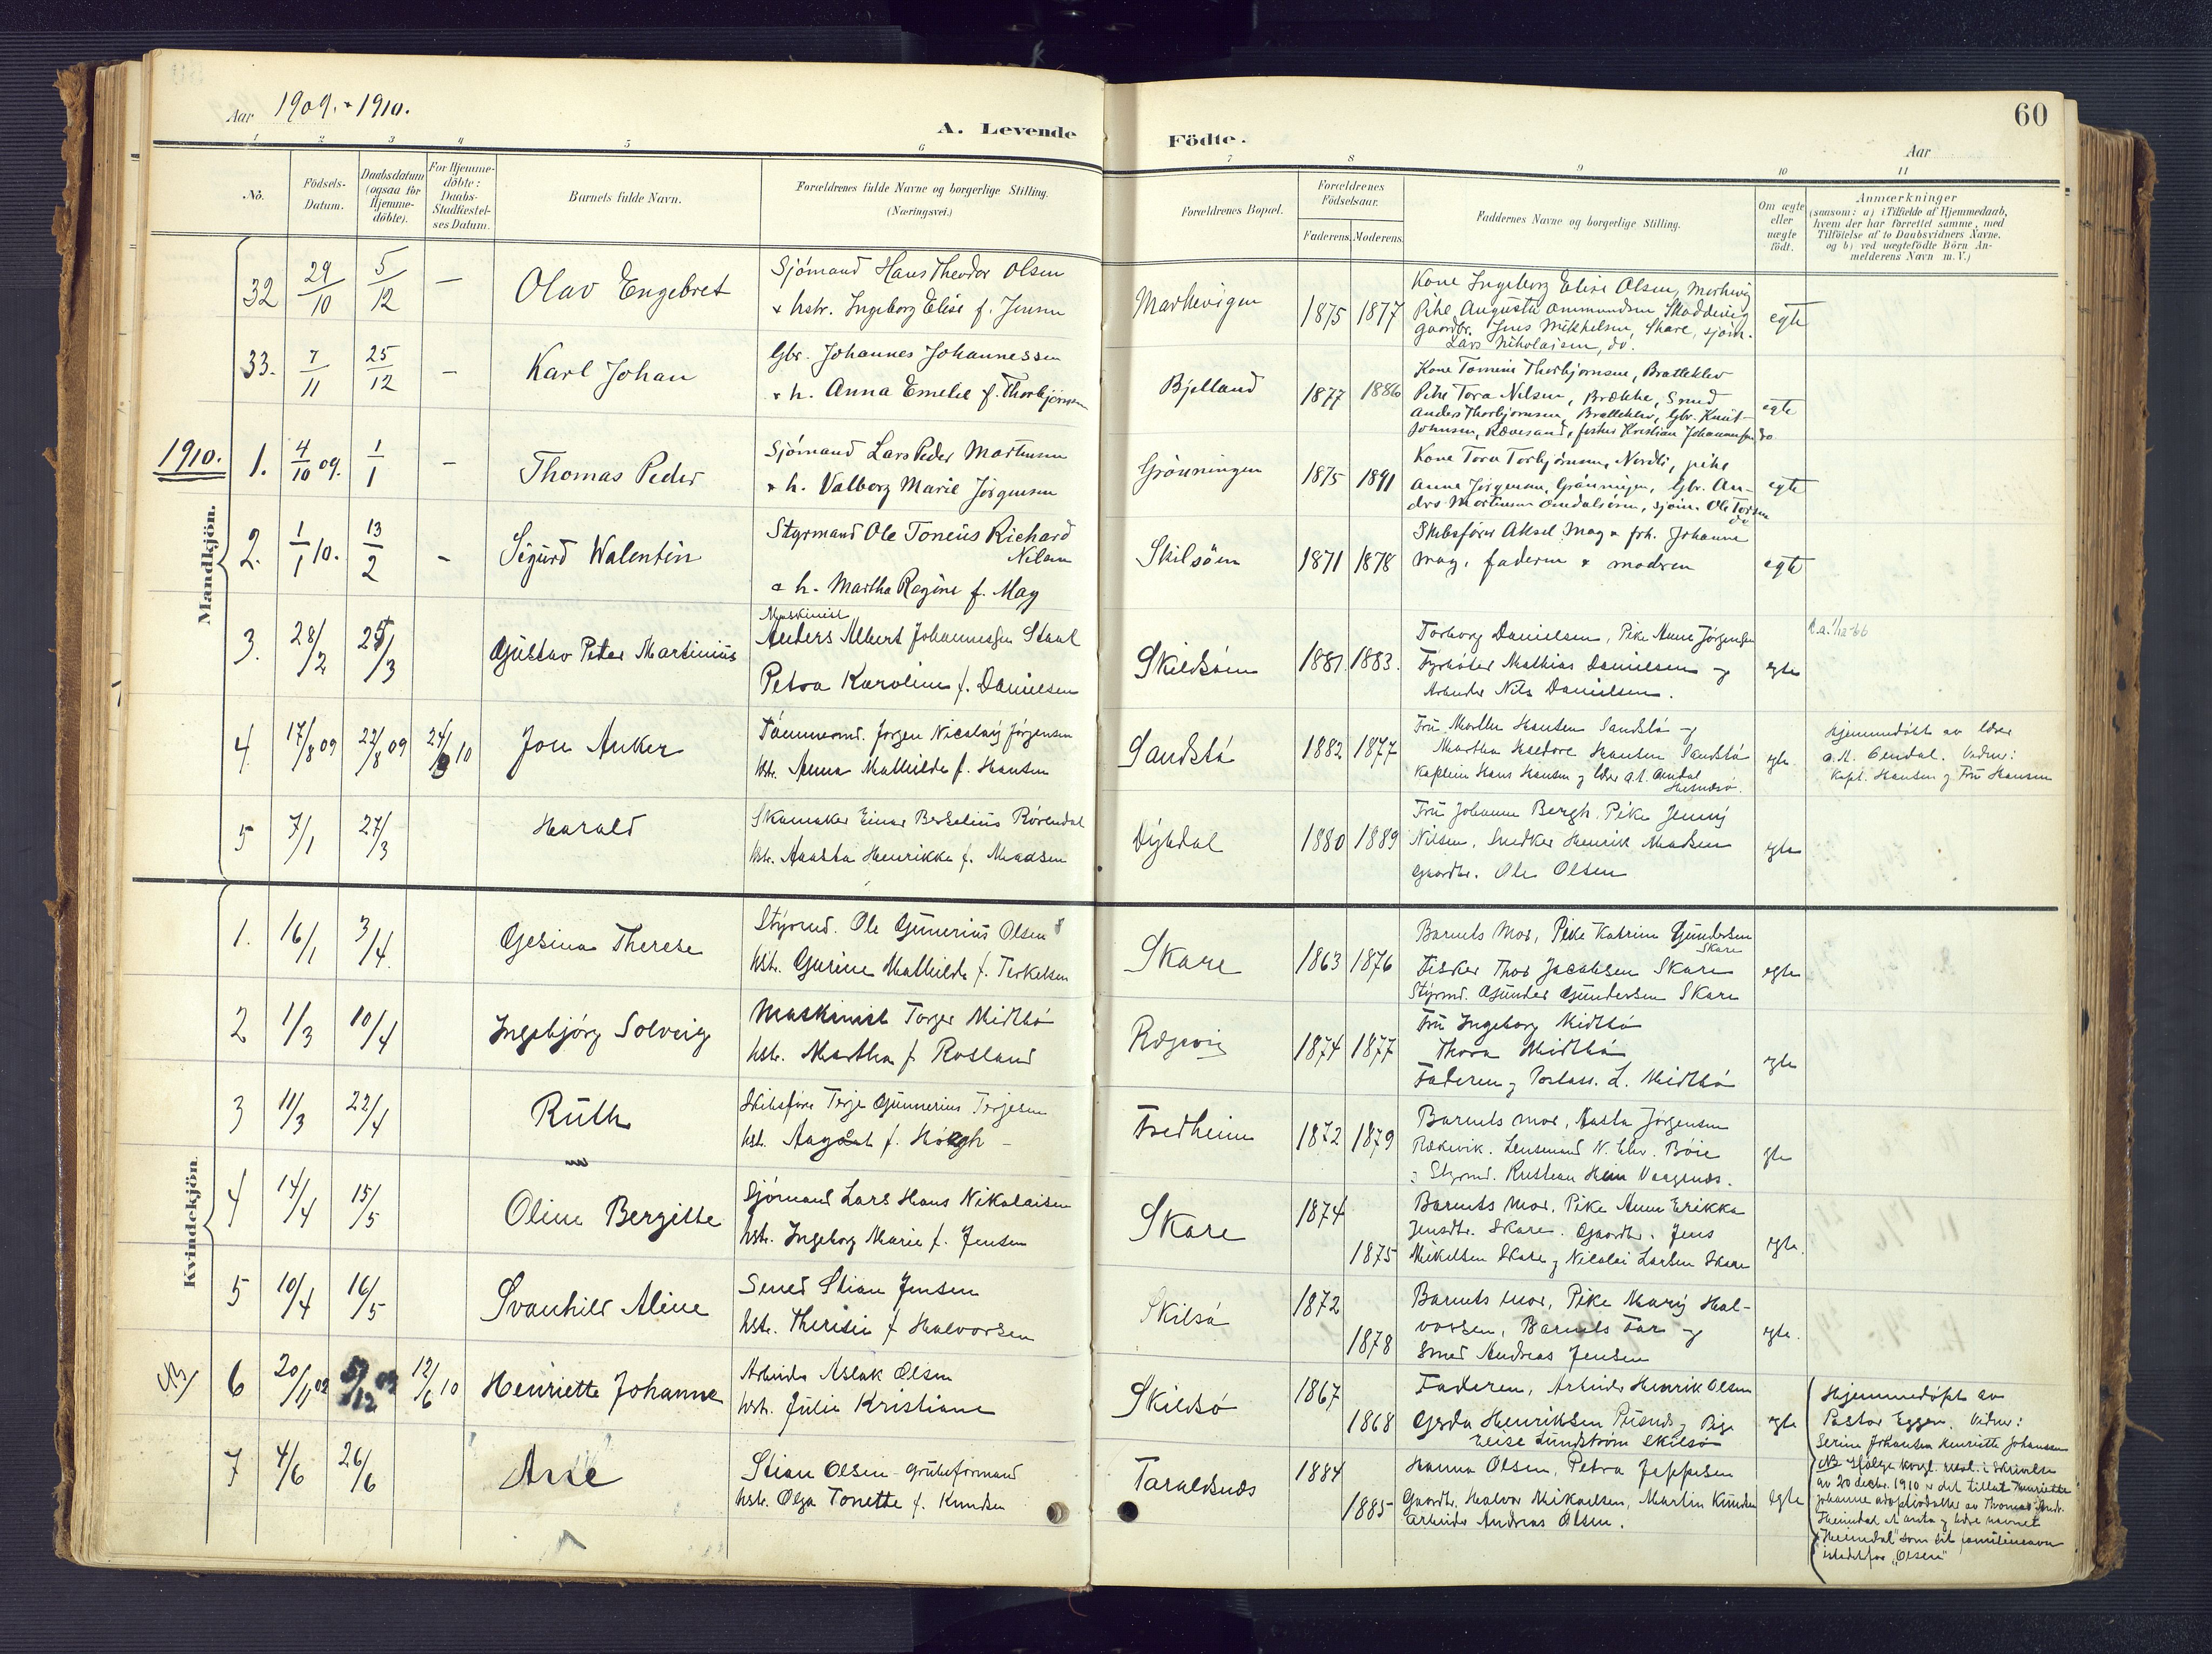 Aar 1909. - 1910.
A. Levende
Födte.
60
Aar
1 2 3 4 5 6 7 8 9 10 11
No.
Födsels-Datum.
Daabsdatum (ogsaa för Hjemme-döbte).
For Hjemme-döbte: Daabs-Stadfæstel-ses Datum.
Barnets fulde Navn.
Forældrenes fulde Navne og borgerlige Stilling. (Næringsvei.)
Forældrenes Bopæl.
Forældrenes Födselsaar.
Faderens. Moderens.
Faddernes Navne og borgerlige Stilling.
Om ægte eller uægte födt.
Anmærkninger
(saasom: a) i Tilfælde af Hjemmedaab,
hvem der har forrettet samme, med
Tilföielse af to Daabsvidners Navne,
og b) ved uægtefödte Börn An-
melderens Navn m.V.)
Mandkjön.
32 29/10 5/12 — Olav Engebret
Sjömand Hans Theodor Olsen
& hstr. Ingeborg Elise f. Jensen
1875 1877
Kone Ingeborg Elise Olsen,
Pike Augusta
gaardbr. Jens Mikkelsen, Skare, sjöm.
Lars Nikolaisen, do.
egte
33. 7/11 25/12 — Karl Johan
Gbr. Johannes Johannessen
& h. Anna Emelie f. Thorbjörnsen
Bjelland 1877 1886
Thorbjörnsen, Bratteklev
Pike Tora Nilsen, Brække, Smed
Anders Thorbjörnsen, Bratteklev, Gbr. Knut
Johnsen, Rævesand, fisker Kristian Johannessen do
egte
1910. 1. 4/10 09. 1/1 — Thomas Peder
Sjömand Lars Peder Mortensen
& h. Valborg Marie Jörgensen
Grönningen 1875 1891
Kone Tora Torbjörnsen, Nordli, pike
Anna Jörgensen, Grönningen, Gbr. An-
ders Mortensen
egte
2. 1/1 10. 13/2 - Sigurd Walentin
Styrmand Ole Toneus Richard
Nilsen
& h. Martha Regine f. May
Skilsöen 1871 1878
Skibsförer Aksel May & frk. Johanne
May, faderen & moderen
egte
3. 28/2 25/3 Gustav Peter Martinius
Maskinist
Anders Albert Johannessen Staal
Petra Karoline f. Danielsen
Skildsöen 1881. 1883.
Torborg Danielsen, Pike Anna Jörgensen
Fyrböter Mathias Danielsen og
Arbeider Nils Danielsen.
egte
4. 17/8 09 22/8 09 10 Jon Anker
Tömmermd. Jörgen Nicolay Jörgensen
hstr. Anna Mathilde f. Hansen
Sandstö 1882 1877
Fru Marthe Hansen Sandstö og
Martha Hansen Sandstö
Kaptein Hans Hansen og lærer
egte
Hjemmedöbt av lærer
Vidner:
Kapt. Hansen og Fru Hansen
5 7/1 27/3 Harald
Skomaker Einar Berselius Rörendal
hstr. Aasta Henrikke f. Madsen
Dydal 1880 1889
Fru Johanne Bergh, Pike Jenny
Nilsen, Snedker Henrik Madsen
Gaardbr. Ole Olsen
egte
Kvindekjön.
1. 16/1 3/4. Gesina Therese
Styrmd. Ole Gunerius Olsen &
hstr. Gurine Mathilde f. Terkelsen
Skare 1863 1876
Barnets Mor, Pike Katrine Gundersen
Skare
Fisker Thor Jacobsen Skare
Styrmd. Gunder Gundersen Skare
egte
2 1/3 10/4 Ingebjörg Solveig
Maskinist Torger Midtbö
hstr. Martha f. Rosland
1874 1877
Fru Ingeborg Midtbö
Thora Midtbö
Faderen og L. Midtbö
egte
3 11/3 22/4 Ruth
Skibsförer Terje Gunnerius Terjesen
hst. Aagot f. Höegh -
Fredheim 1872 1879
Barnets mor, Aasta Jörgensen
Rækevik. Lensmand N. Chr. Böie
og Styrmd. Kristian
egte
4 14/4 15/5 Oline Bergitte
Sjömand Lars Hans Nikolaisen
hstr. Ingeborg Marie f. Jensen
Skare 1874
1875
Barnets Mor. Pike Anne Erikka
Jensdtr. Skare. Gaardbr. Jens
Mikelsen Skare og Nikolai Larsen Skare
egte.
5 10/4 16/5 Svanhild Aline
Smed Stian Jensen
hstr. Theresie f Halvorsen
Skilsö 1872
1878
Barnets mor, Pike Mary Hal-
vorsen, Barnets Far og
Smed Andreas Jensen
egte.
NB 6 20/11 12/6 10 Henriette Johanne
Arbeider Aslak Olsen
hstr. Julie Kristiane
Skildsö 1867
1868
Faderen, Arbeider Henrik Olsen
Gerda Henriksen og Pige
Elise Lundström Skilsö
egte
Hjemmedöpt av
Pastor Eggen. Vidner:
Serine Johansen Henriette Johannesen
NB Ifölge kongl. resol. i skrivelse
av 20 decbr. 1910 er det tillat Henriette
Johanne adoptivdatter av Thomas Andr.
Heimdal at anta og bære navnet
"Heimdal" som sit familienavn
istedetfor "Olsen"
7 4/6 26/6 Ane
Stian Olsen - grubeformand
hstr. Olga Tonette f. Knudsen
Taraldsnes 1884
1885
Hanna Olsen, Petra Jeppesen
Gaardbr. Halvor Mikaelsen, Martin Knudsen
Arbeider Andreas Olsen.
egte